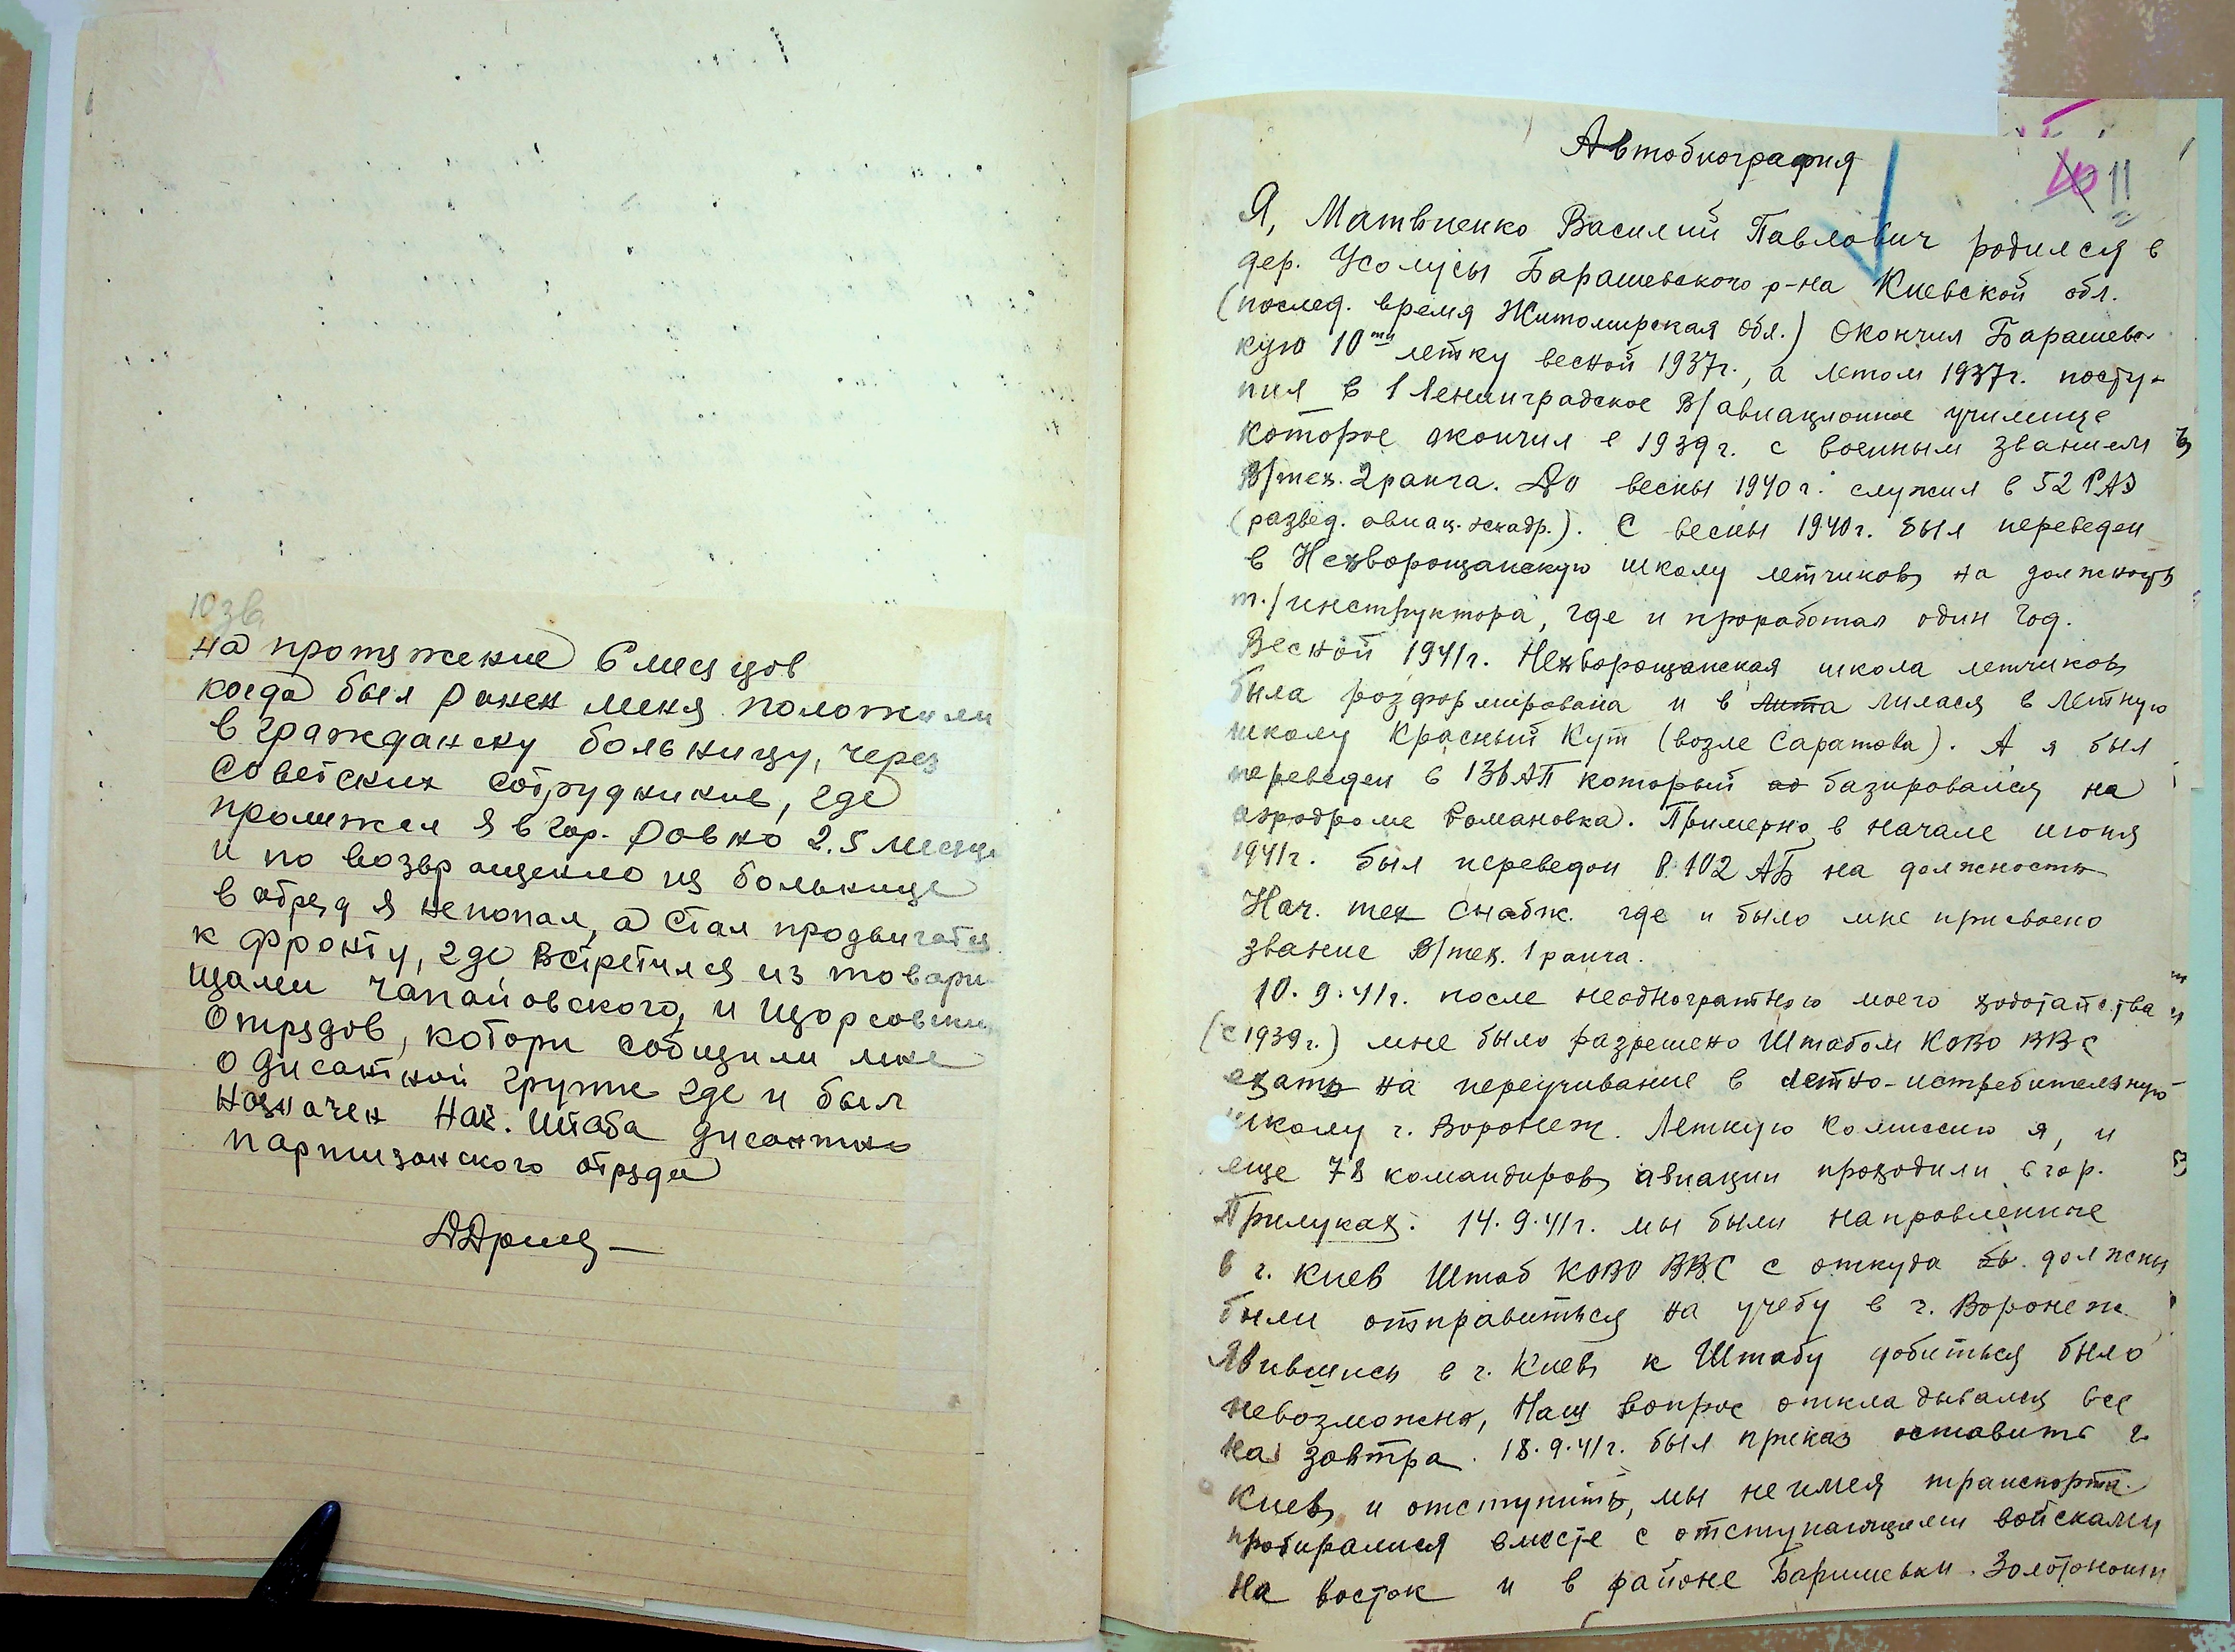 10 зв.
на протяжение 6 месяцов
когда был ранен меня положили
в гражданску больницу, через
советских сотрудников, где
пролижел я в гор. Ровно 2.5 месяц
и по возвращению из больнице
в отряд я непопал, а стал продвигатся
к фронту, где встретился из товари
щами чапаиовского, и щорсовски
отрядов, котори сообщили мне
о дисантной групе где и был
назначен нач. штаба дисантно
партизанского отряда
Автобиография
10 11
Я, Матвиенко Василий Павлович родился в
дер. Усолусы Барашевского р-на Киевской обл.
(послед. время Житомирская обл.) Окончил Барашевс
кую 10ти летку весной 1937г., а летом 1937г. посту-
пил в 1 Ленинградское В/авиационное училище
которое окончил в 1939г. с военным званием
В/тех. 2 ранга. До весны 1940г. служил в 52 РАЭ
(развед. авиац. эскадр.). С весны 1940г. был переведен
в Нехворощанскую школу летчиков на должность
т./инструктора, где и проработал один год.
Весной 1941г. Нехворощанская школа летчиков
была розформирована и в лита лилася в летную
школу Красный Кут (возле Саратова). А я был
переведен в который базировался на
аэродроме Романовка. Примерно в начале июня
1941г. был переведен в 102 АБ на должность
Нач. тех снабж. где и было мне присвоено
звание В/тех. 1 ранга.
10.9.41г. после неодногратного моего ходотайства
(с 1939г.) мне было разрешено Штабом КОВО ВВС
ехать на переучивание в летно-истребительную
школу г. Воронеж. Летную комиссию я, и
еще 78 командиров авиации проходили в гор.
Прилуках. 14.9.41г. мы были направленные
в г. Киев Штаб КОВО ВВС с откуда бы. должны
были отправиться на учебу в г. Воронеж
Явившись в г. Киев к Штабу добиться было
невозможно, Наш вопрос откладывался все
на завтра. 18.9.41г. был приказ оставить г.
Киев и отступить, мы не имея транспорта
пробиралися вместе с отступающими войсками
на восток и в районе Баришевки. Золотоноши